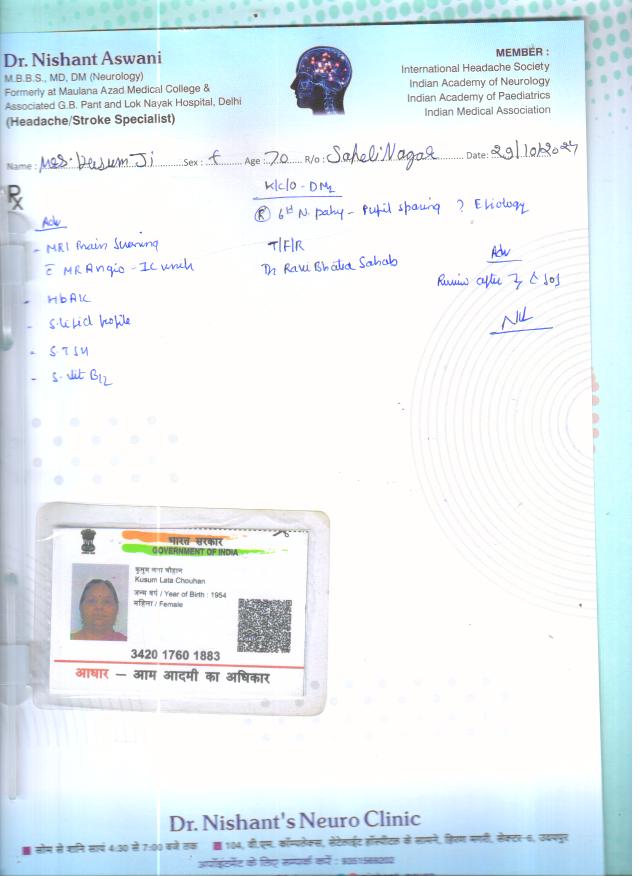 Dr. Nishant Aswani
M.B.B.S., MD, DM (Neurology)
Formerly at Maulana Azad Medical College &
Associated G.B. Pant and Lok Nayak Hospital, Delhi
(Headache/Stroke Specialist)
MEMBER :
International Headache Society
Indian Academy of Neurology
Indian Academy of Paediatrics
Indian Medical Association
Name : Mrs. Kusum Ji Sex : f Age : 70 R/o : Saheli Nagar Date: 29/10/2024
Rx
K/C/O - DM2
(R) 6th N. palsy - Pupil sparing ? Etiology
T/F/R
Dr Ravi Bhatia Sahab
Adv
- MRI Brain Screening
c MR Angio -
- HbA1C
- S. Lipid profile
- S. TSH
- S. Vit B12
Adv
Review after
भारत सरकार
GOVERNMENT OF INDIA
कुसुम लता चौहान
Kusum Lata Chouhan
जन्म वर्ष / Year of Birth : 1954
महिला / Female
3420 1760 1883
आधार – आम आदमी का अधिकार
Dr. Nishant's Neuro Clinic
सोम से शनि सायं 4:30 से 7:00 बजे तक
104, पी.एम. कॉम्पलेक्स, सेटेलाईट हॉस्पीटल के सामने, हिरण मगरी, सेक्टर-6, उदयपुर
अपॉइंटमेंट के लिए सम्पर्क करें : 9351569202